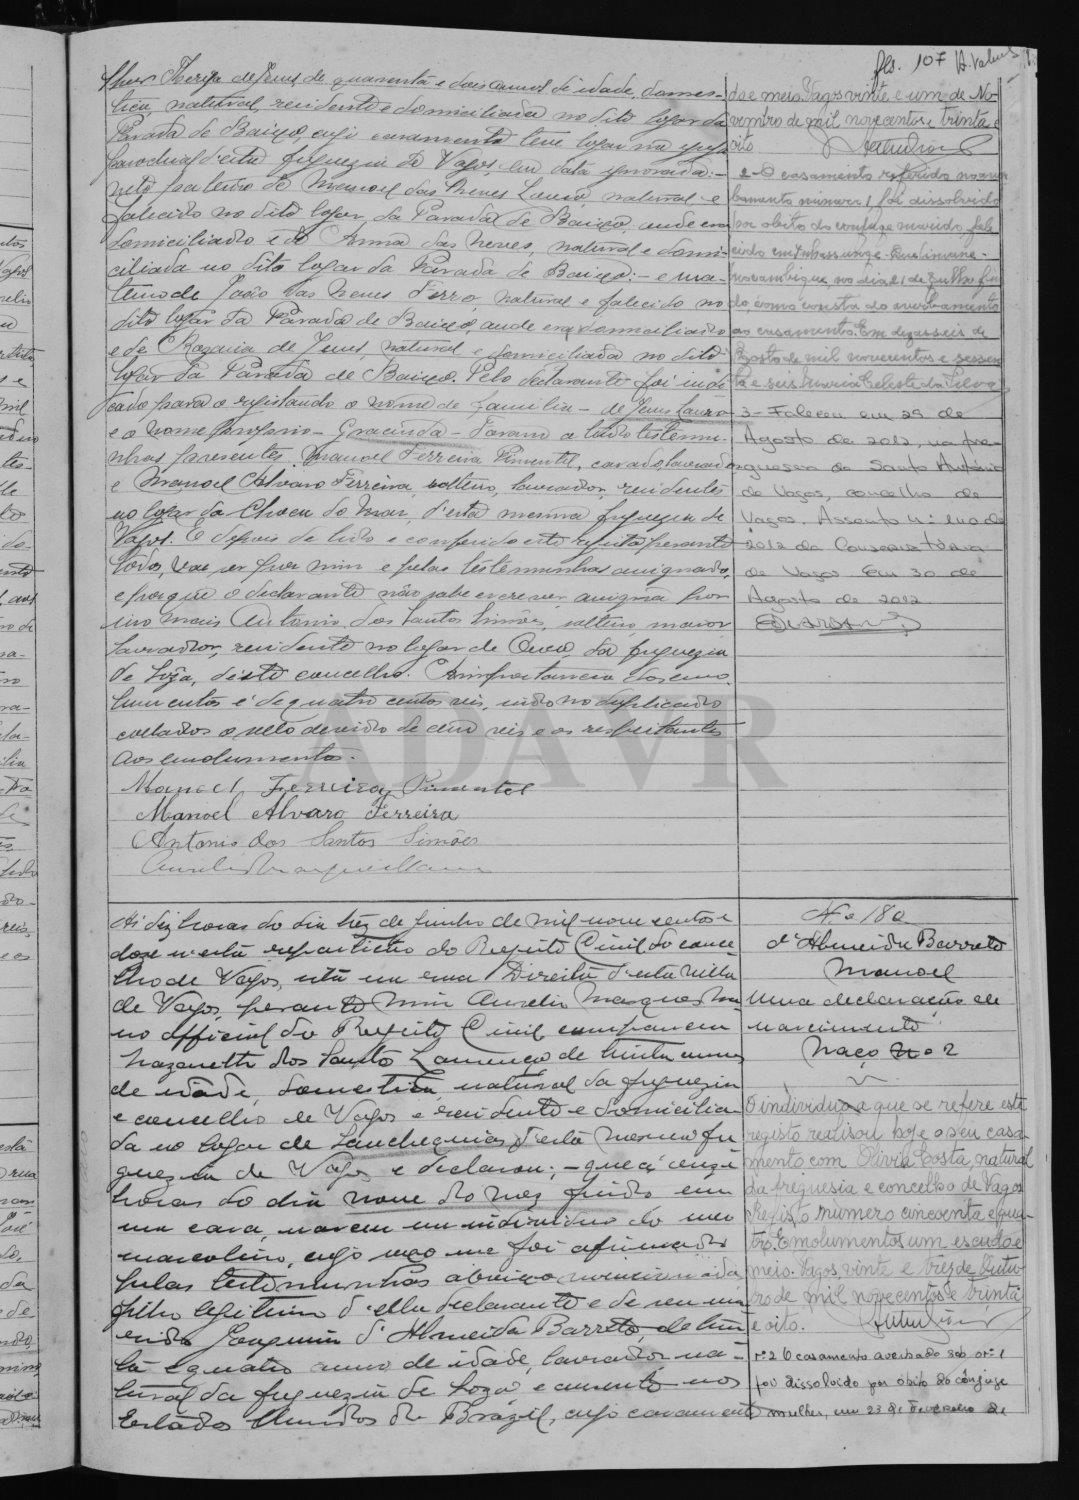 fls. 107
lher Thereza de Jesus, de quarenta e dois annos de idade, domes-
tica, natural, residente e domiciliada no dito logar da
Parada de Baixo, cujo casamento teve logar na egreja
parochial d'esta freguezia de Vagos, em data ignorada; -
neto paterno de Manoel das Neves Lauro, natural e
falecido no dito logar da Parada de Baixo, onde era
domiciliado e de Anna das Neves, natural e domi-
ciliada no dito logar da Parada de Baixo; - e ma-
terno de João das Neves Ferro, natural e falecido no
dito logar da Parada de Baixo, onde era domiciliado
e de Rozaria de Jesus, natural e domiciliada no dito
logar da Parada de Baixo. Pelo declarante foi indi-
cado para o registando o nome de familia - de Jesus Lauro -
e o nome proprio - Gracinda - Foram a tudo testemu-
nhas presentes Manoel Ferreira Pimentel, casado, lavrador
e Manoel Alvaro Ferreira, solteiro, lavrador, residentes
no logar da Choca do Mar, d'esta mesma freguezia de
Vagos. E depois de lido e conferido este registo perante
todos, vae ser por mim e pelas testemunhas assignado,
e porque o declarante não sabe escrever assigna por
elle Antonio dos Santos Simões, solteiro, maior
lavrador, residente no logar de da freguezia
de Soza, deste concelho. A importancia dos emo-
lumentos é de quatro centos reis, indo no duplicado
collados o sello devido de cem reis e os respeitantes
aos emolumentos.
Manoel Ferreira Pimentel
Manoel Alvaro Ferreira
Antonio dos Santos Simões
do e meio. Vagos vinte e um de No-
vembro de mil novecentos e trinta e
oito.
2 - O casamento referido no aver-
bamento numero 1 foi dissolvido
por obito do conjuge marido, fale-
cido em Quelimane -
Moçambique no dia 21 de Julho fin-
do, como consta do averbamento
ao casamento. Em dezasseis de
Agosto de mil novecentos e sessen-
ta e seis. Maria Celeste da Silva
3 - Faleceu em 29 de
Agosto de 2012, na fre-
guesia de Santo António
de Vagos, concelho de
Vagos. Assento n.º 110 de
2012 da Conservatória
de Vagos. Em 30 de
Agosto de 2012
ADAVR
Ás dez horas do dia trez de Junho de mil nove centos e
doze n'esta repartição do Registo Civil do conce-
lho de Vagos, sita na rua Direita d'esta villa
de Vagos, perante mim Aurelio Marques Ma-
no official do Registo Civil compareceu
Nazareth dos Santos Lourenço de trinta annos
de idade, domestica, natural da freguezia
e concelho de Vagos e residente e domicilia-
da no logar de Sanchequias, d'esta mesma fre-
guezia de Vagos e declarou; - que ás onze
horas do dia nove do mez findo em
sua casa, nasceu um individuo do sexo
masculino, cujo sexo me foi afirmado
pelas testemunhas abaixo mencionadas
filho legitimo d'ella declarante e de seu ma-
rido Joaquim d'Almeida Barreto, de trin-
ta e quatro annos de idade, lavrador, na-
tural da freguezia de Soza e ausente nos
Estados Unidos do Brazil, cujo casamento
N.º 180
d'Almeida Barreto
Manoel
Uma declaração de
nascimento
Maço n.º 2
O individuo a que se refere este
registo realisou hoje o seu casa-
mento com Olivia Costa, natural
da freguesia e concelho de Vagos
Registo numero cincoenta e qua-
tro. Emolumentos um escudo e
meio. Vagos, vinte e trez de Outu-
bro de mil novecentos e trinta
e oito.
n.º 2 O casamento averbado sob o n.º 1
foi dissolvido por óbito do cônjuge
mulher, em 23 de Fevereiro de